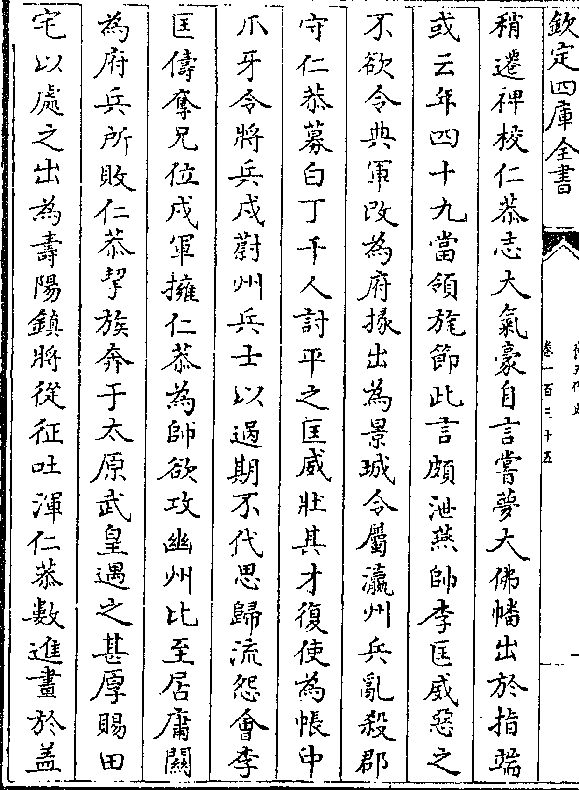 欽定四庫全書
卷一百三十五
稍遷裨校仁恭志大氣豪自言嘗夢大佛幡出於指端
或云年四十九當領旄節此言頗泄燕帥李匡威惡之
不欲令典軍改為府掾出為景城令屬瀛州兵亂殺郡
守仁恭募白丁千人討平之匡威壯其才復使為帳中
爪牙令將兵戍蔚州兵士以過期不代思歸流怨會李
匡儔奪兄位戍軍擁仁恭為帥欲攻幽州比至居庸關
為府兵所敗仁恭挈族奔于太原武皇遇之甚厚賜田
宅以處之出為壽陽鎮將從征吐渾仁恭數進畫於蓋